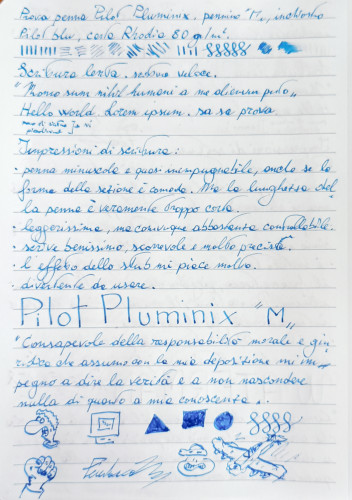 Prova penna Pilot Pluminix, pennino "M", inchiostro
Pilot blu, carta Rhodia 80 g/m².
Scrittura lenta, scrittura veloce.
"Homo sum nihil humani a me alienum puto"
Hello world. Lorem ipsum. sa sa prova
Impressioni di scrittura:
· penna minuscola e quasi impugnabile, anche se la
forma della sezione è comoda. Ma la lunghezza del
la penna è veramente troppo corta.
· leggerissima, ma comunque abbastanza controllabile.
· scrive benissimo, scorrevole e molto precisa.
· l'effetto dello stub mi piace molto.
· divertente da usare.
Pilot Pluminix "M"
"Consapevole della responsabilità morale e giu
ridica che assumo con la mia deposizione mi im-
pegno a dire la verità e a non nascondere
nulla di quanto a mia conoscenza".